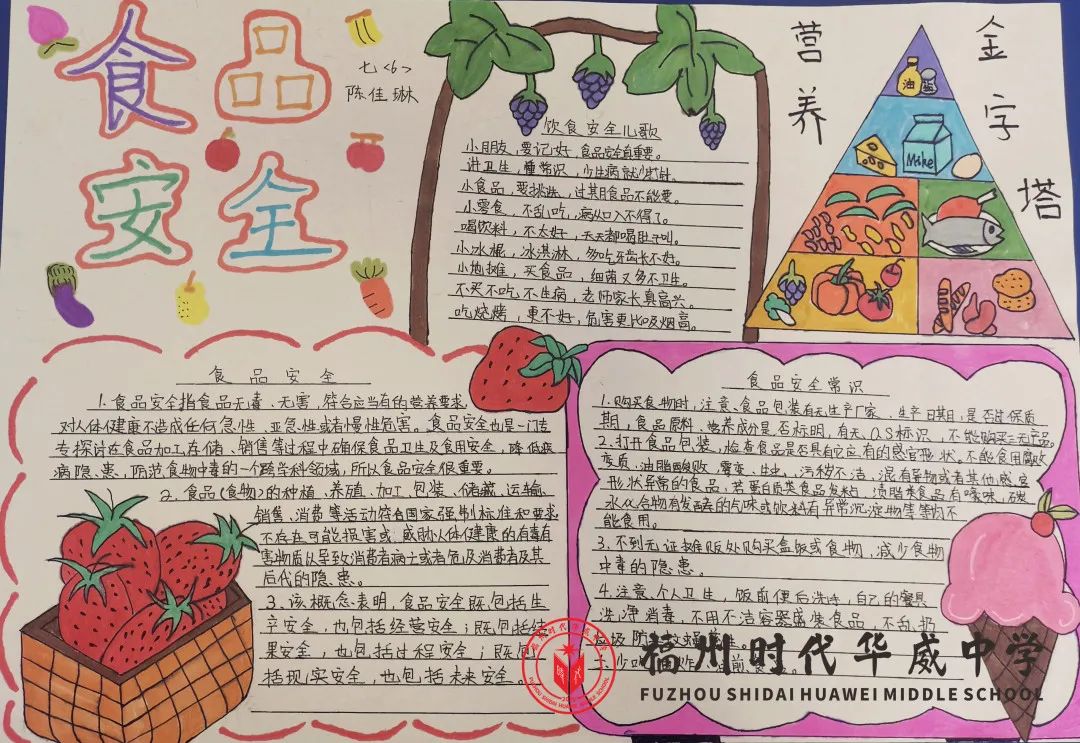 食品
安全
七<6>
陈佳琳
饮食安全儿歌
小朋友,要记好,食品安全首重要。
讲卫生,懂常识,少生病就少打针。
小食品,要挑选,过其月食品不能要。
小零食,不乱吃,病从口入不得了。
喝饮料,不太好,天天都喝肚子叫。
小冰棍,冰淇淋,多吃牙齿长不好。
小地摊,买食品,细菌又多不卫生。
不买不吃不生病,老师家长真高兴。
吃烧烤,更不好,危害更比吸烟高。
营养
金字塔
油
盐
Mike
食品安全
1.食品安全指食品无毒、无害,符合应当有的营养要求,
对人体健康不造成任何急性、亚急性或者慢性危害。食品安全也是一门专
专探讨在食品加工、存储、销售等过程中确保食品卫生及食用安全,降低疾
病隐患,防范食物中毒的一个跨学科领域,所以食品安全很重要。
2.食品(食物)的种植、养殖、加工、包装、储藏、运输、
销售、消费等活动符合国家强制标准和要求
不存在可能损害或威胁人体健康的有毒有
害物质以导致消费者病亡或者危及消费者及其
后代的隐患。
3.该概念表明,食品安全既包括生
产安全,也包括经营安全;既包括结
果安全,也包括过程安全;既包
括现实安全,也包括未来安全。
食品安全常识
1.购买食物时,注意食品包装有无生产厂家、生产日期,是否过保质
期,食品原料、营养成分是否标明,有无QS标识,不能购买三无产品。
2.打开食品包装,检查食品是否具有它应有的感官形状。不能食用腐败
变质、油脂酸败、霉变、生虫、污秽不洁、混有异物或者其他感官
形状异常的食品,若蛋白质类食品发粘,渍脂类食品有嗓味,碳
水化合物有发酵的气味或饮料有异常沉淀物等等均不
能食用。
3.不到无证摊贩处购买盒饭或食物,减少食物
中毒的隐患。
4.注意个人卫生,饭前便后洗手,自己的餐具
洗净消毒,不用不洁容器盛装食品,不乱扔
垃圾防
少吃
福州时代华威中学
FUZHOU SHIDAI HUAWEI MIDDLE SCHOOL